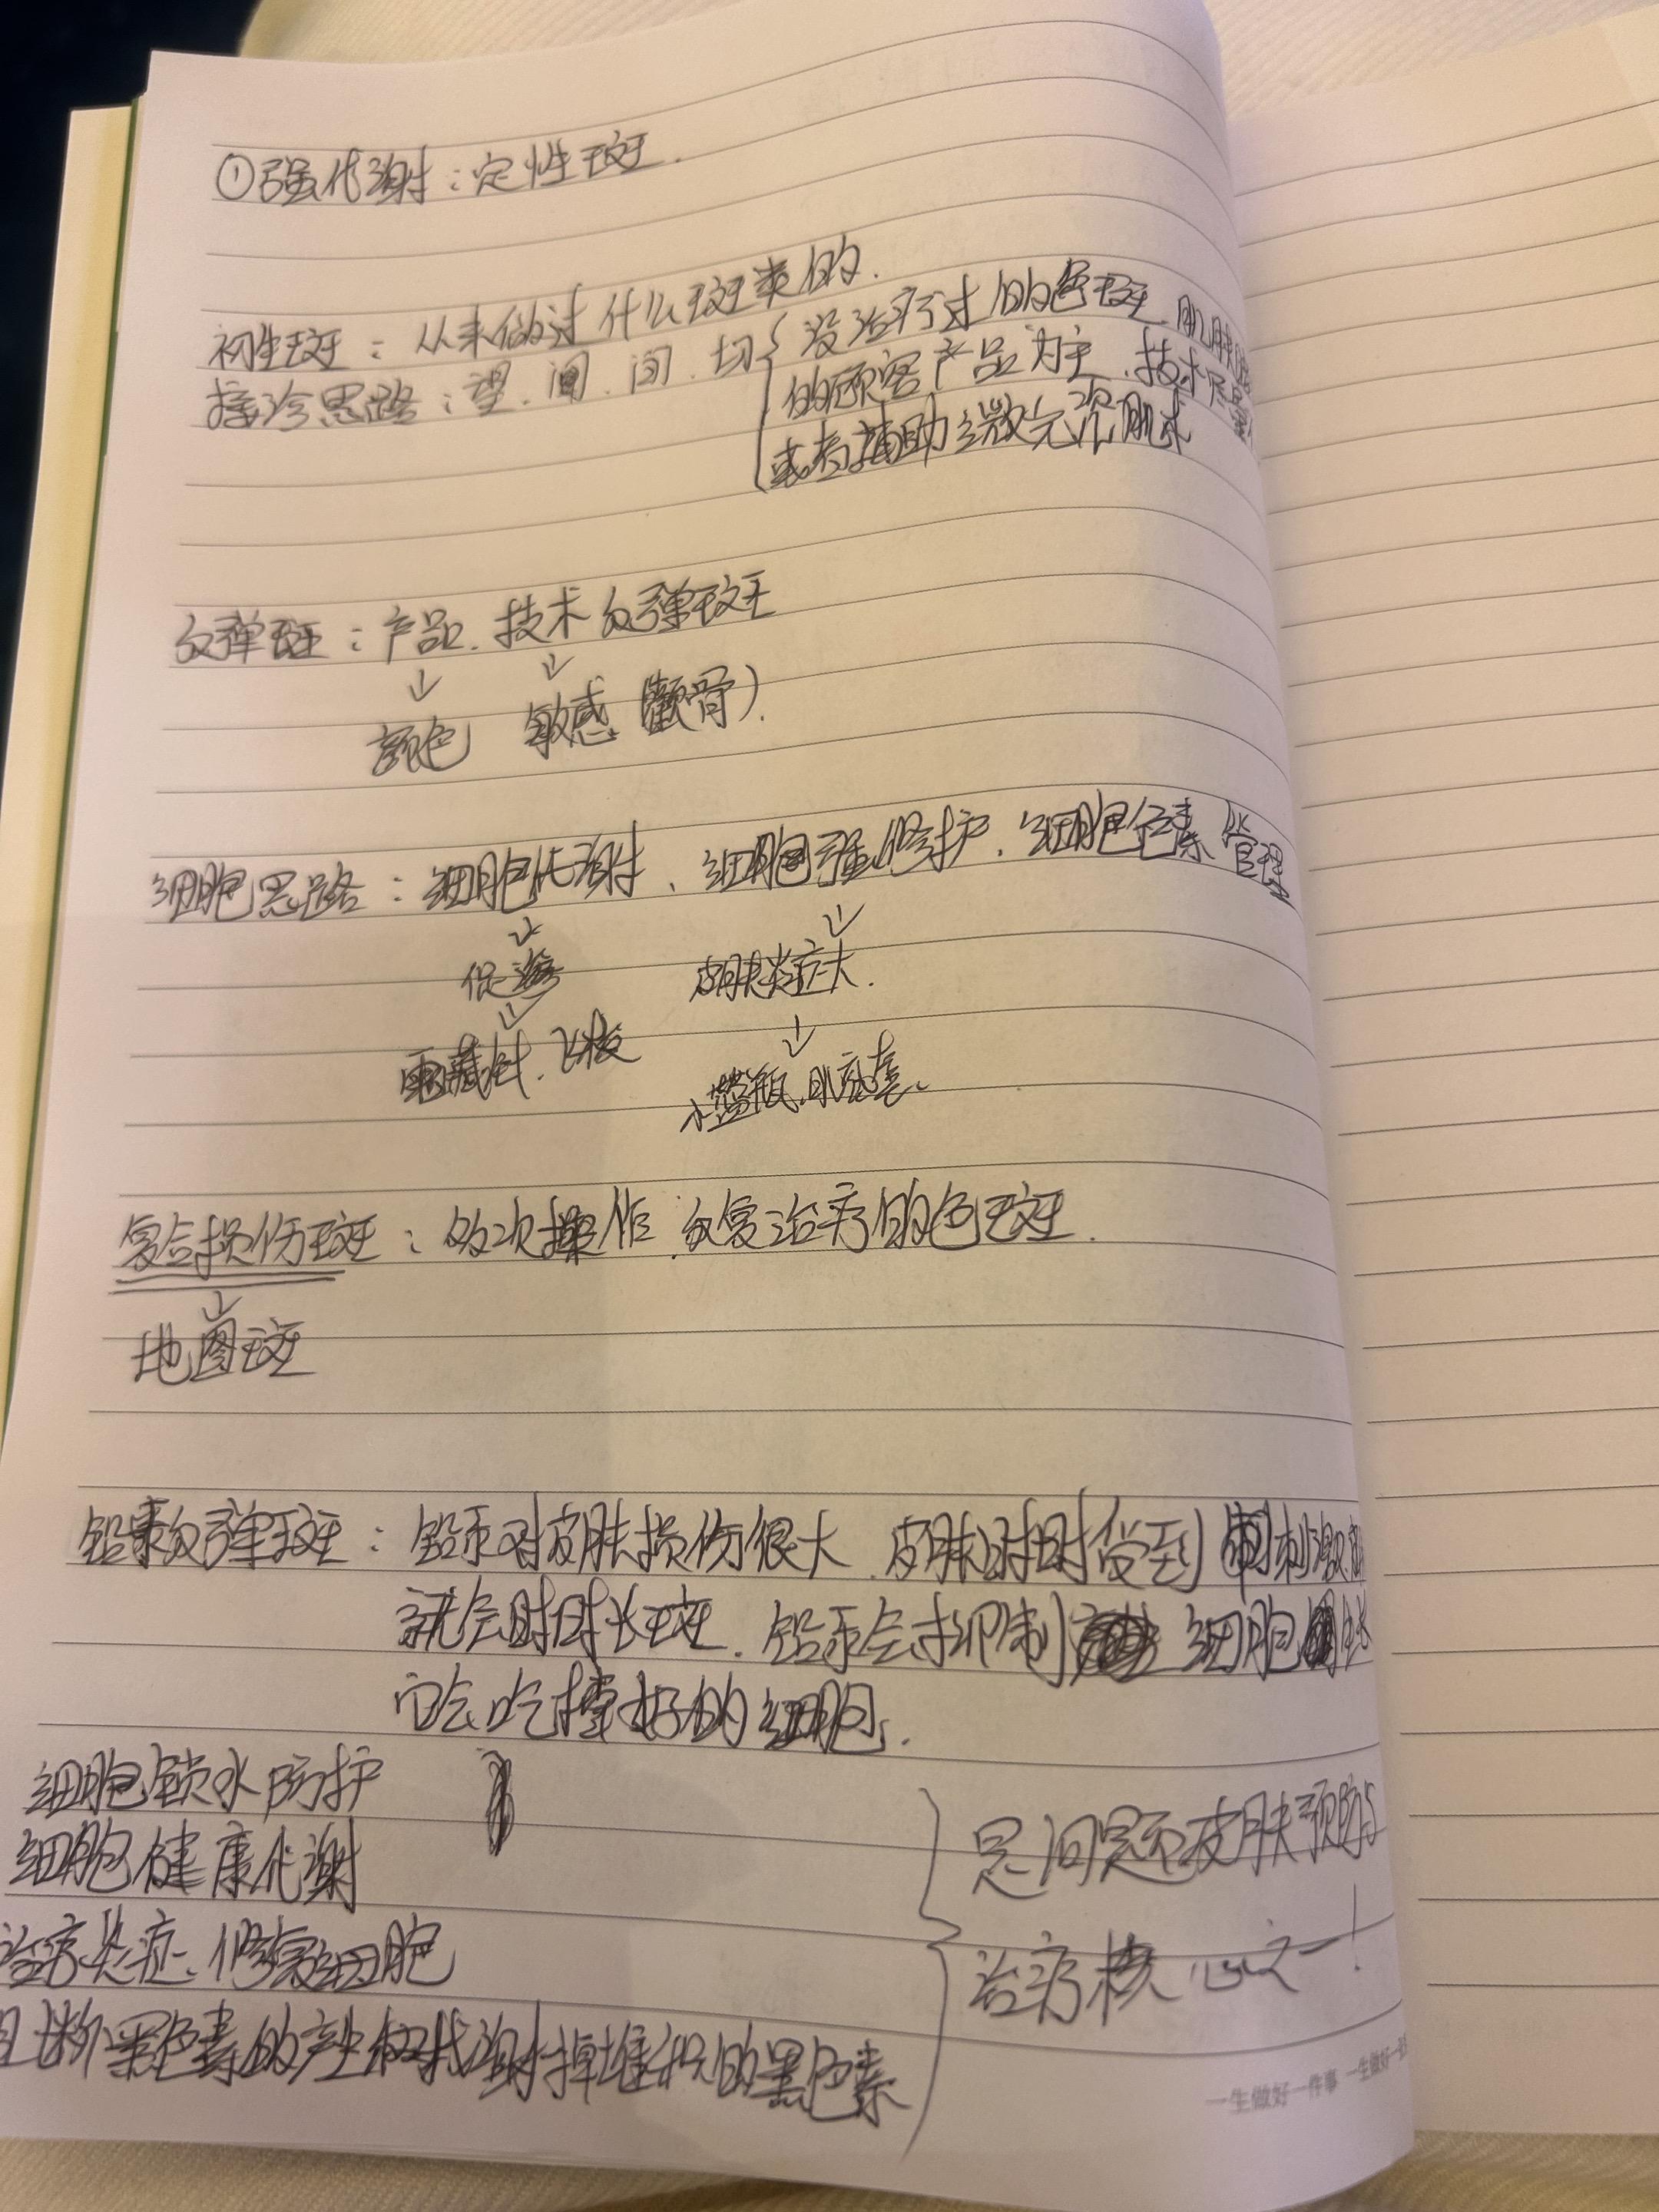 ①强代谢：定性斑.
初生斑：从来做过什么斑类的.
接诊思路：望、闻、问、切
没治疗过的色斑、肌肤
的顾客产品为主、技术
或者辅助微元次肌术
反弹斑：产品、技术反弹斑
颜色 敏感（颧骨）.
细胞思路：细胞代谢、细胞强修护、细胞色素管理
促
皮肤炎症大.
小蓝瓶、肌
复合损伤斑：多次操作、反复治疗的色斑.
地图斑
铅汞反弹斑：铅汞对皮肤损伤很大、皮肤时时受到刺激
就会时时长斑、铅汞会抑制 细胞
它会吃掉好的细胞.
细胞锁水防护
细胞健康代谢
治疗炎症、修复细胞
阻断黑色素的产生和代谢掉堆积的黑色素
是问题皮肤预防与
治疗核心之一！
一生做好一件事 一生做好一